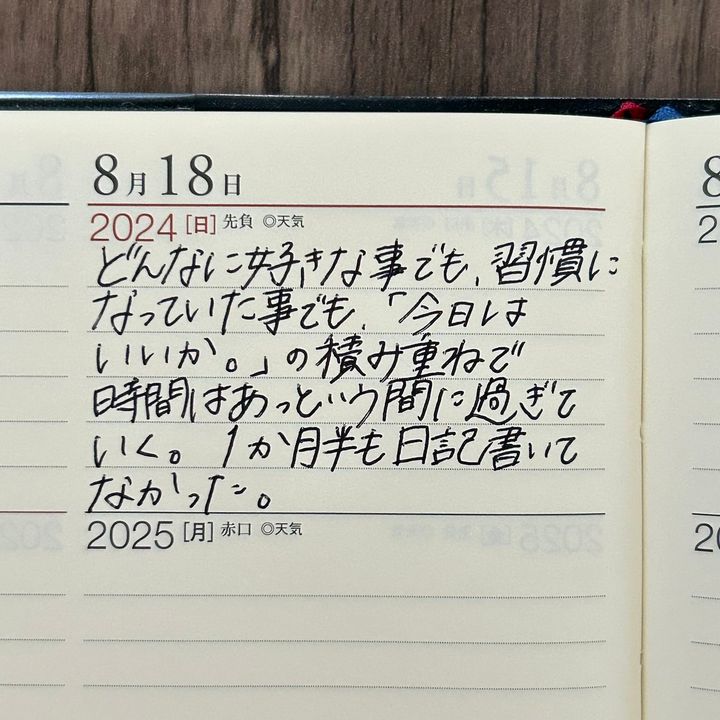 8月18日
2024[日] 先負 ◎天気
どんなに好きな事でも、習慣に
なっていた事でも、「今日は
いいか。」の積み重ねで
時間はあっという間に過ぎて
いく。1か月半も日記書いて
なかった。
2025[月] 赤口 ◎天気